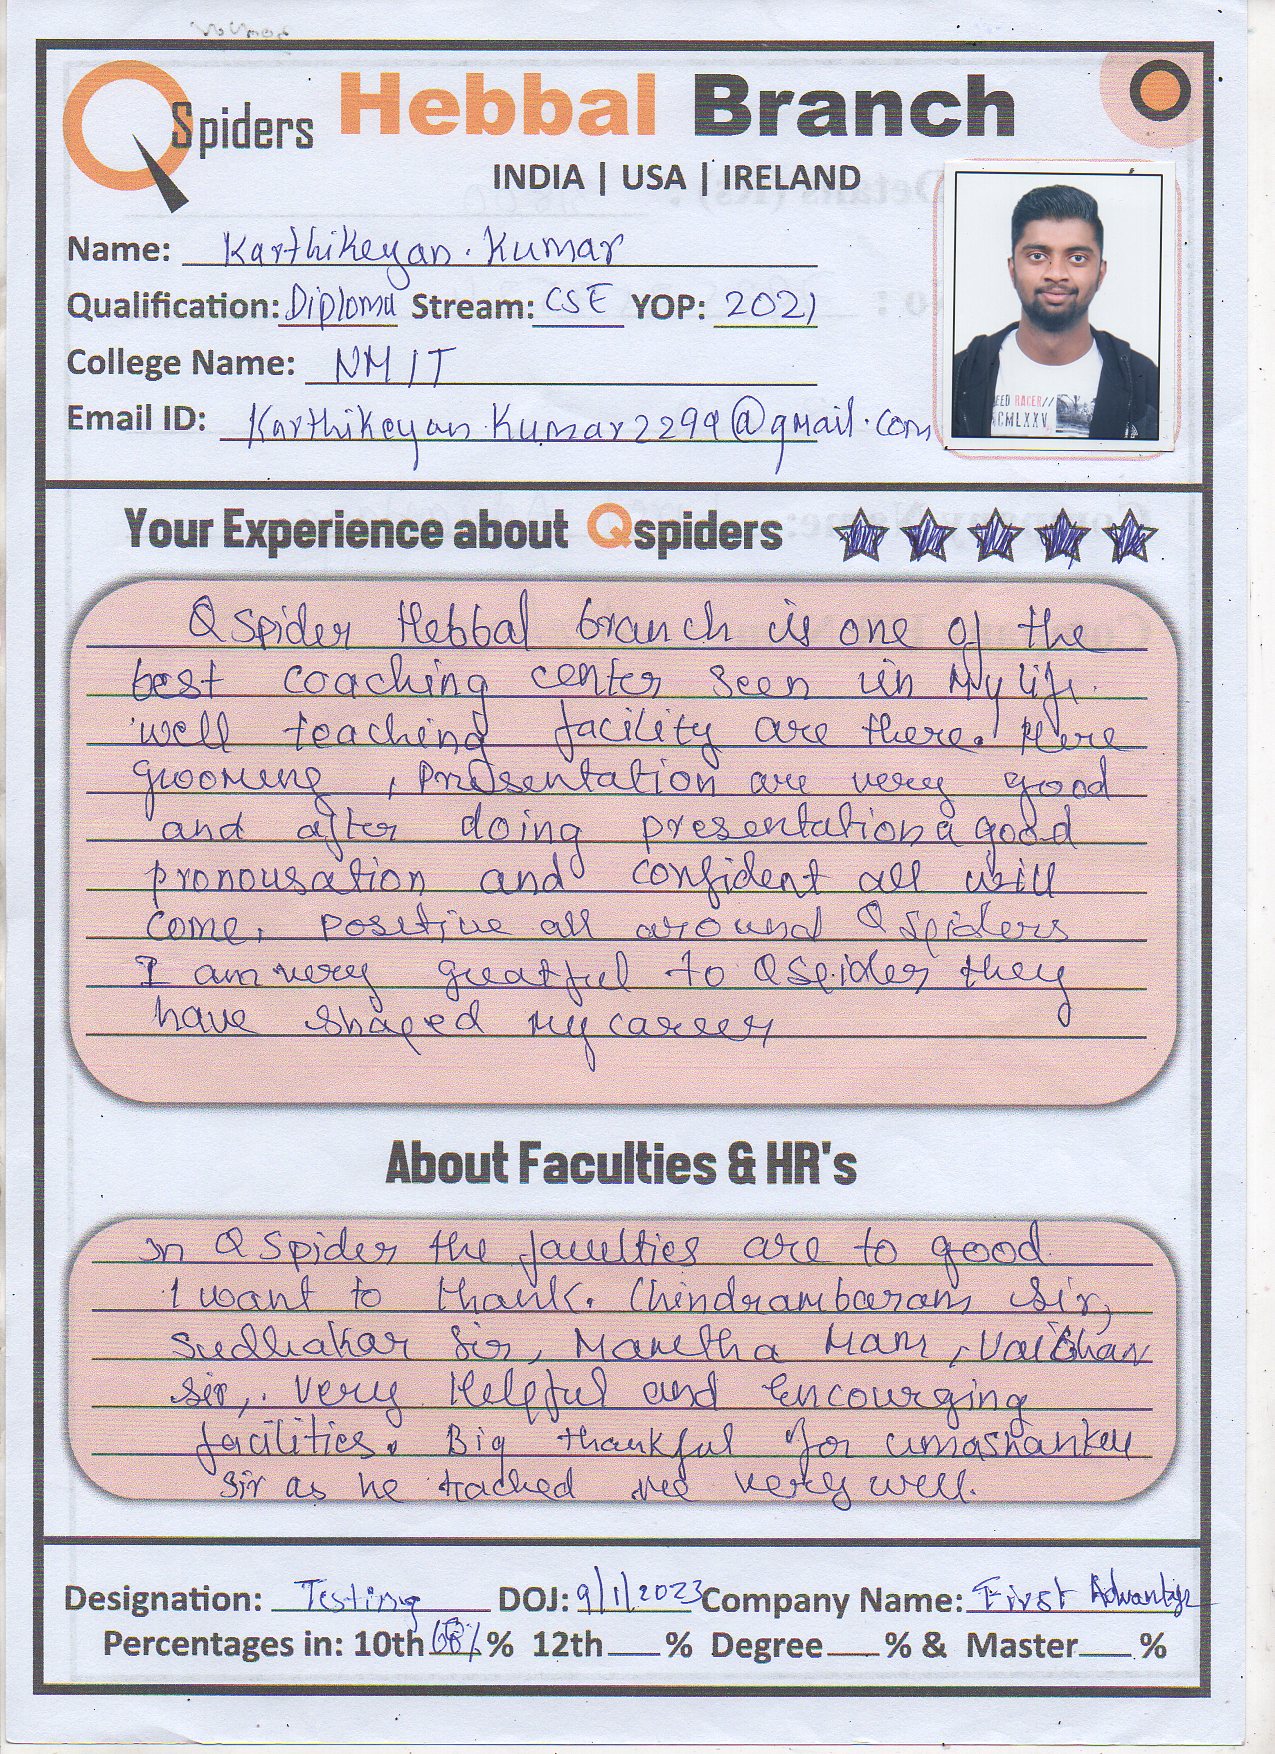 QSpiders Hebbal Branch
INDIA | USA | IRELAND
Name: Karthikeyan. Kumar
Qualification: Diploma Stream: CSE YOP: 2021
College Name: NMIT
Email ID: Karthikeyan.Kumar2299@gmail.com
EED RACER//
CMLXXV
Your Experience about Qspiders
Q Spider Hebbal branch is one of the
best coaching center seen in My life.
well teaching facility are there. Here
grooming, presentation are very good
and after doing presentation a good
pronousation and confident all will
come. positive all around Q Spiders
I am very greatful to QSpider they
have shaped my career
About Faculties & HR's
In Q Spider the faculties are to good
I want to thank. Chindrambaram Sir,
Sudhakar Sir, Mamtha Mam, Vaibhav
sir, very Helpful and encourging
facilities. Big thankful for umashanker
Sir as he trached me very well.
Designation: Testing DOJ: 9/1/2023 Company Name: First Advantage
Percentages in: 10th % 12th % Degree % & Master %